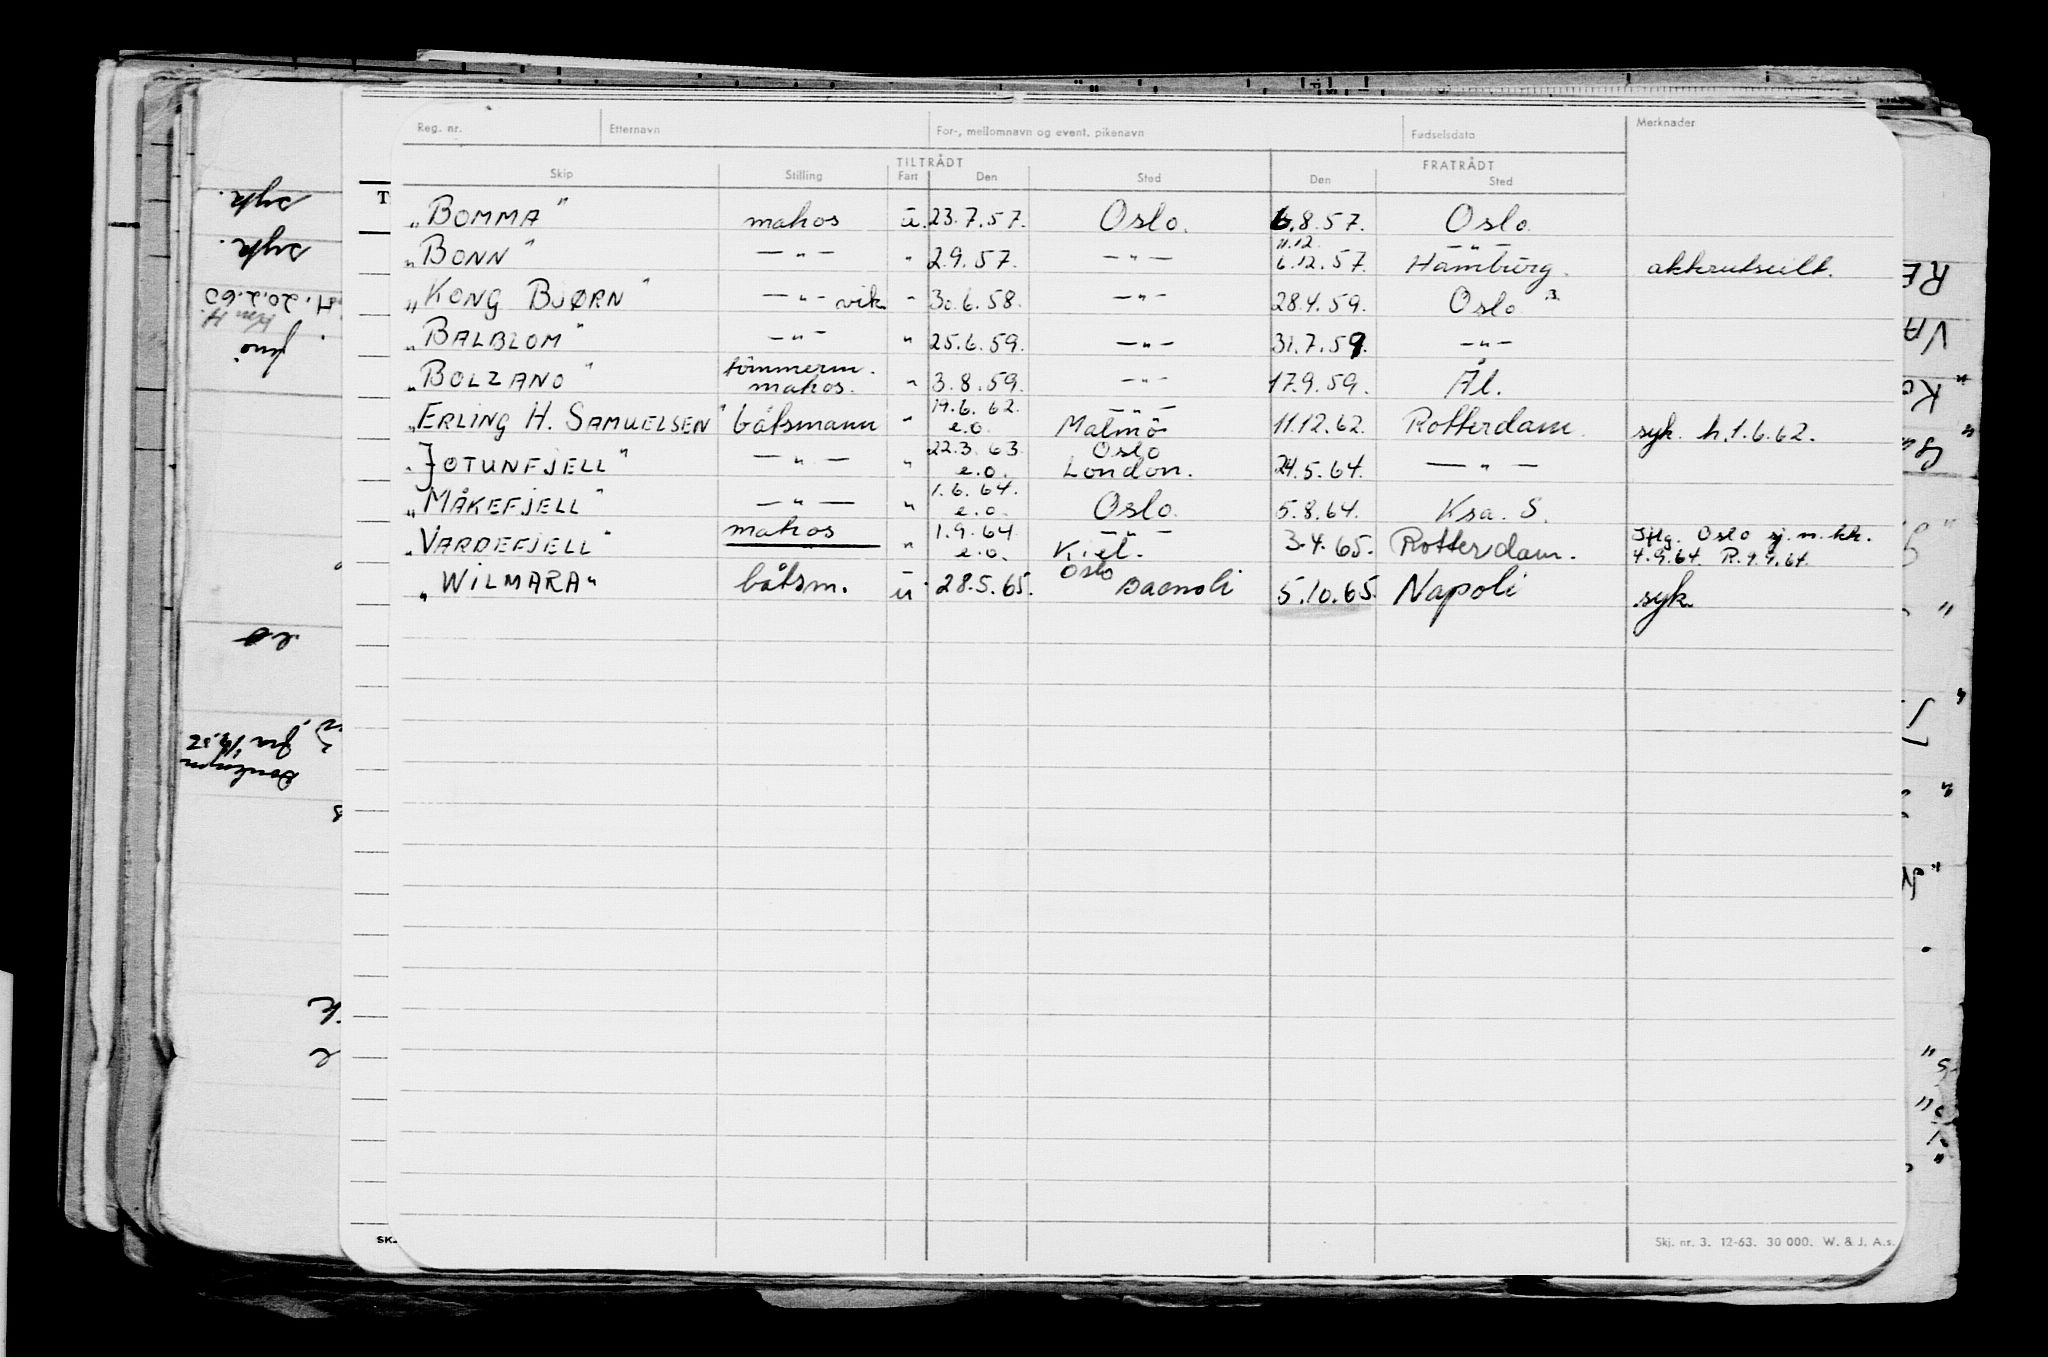 Reg. nr. Etternavn For-, mellomnavn og event. pikenavn Fødselsdato Merknader
TILTRÅDT FRATRÅDT
Skip Stilling Fart Den Sted Den Sted
„BOMMA" matros u. 23.7.57. Oslo. 6.8.57. Oslo.
11.12.
„BONN" —"— " 2.9.57. —"— 6.12.57. Hamburg. akterutseilt.
„KONG BJØRN" —"— vik " 30.6.58. —"— 28.4.59. Oslo
„BALBLOM" —"— " 25.6.59. —"— 31.7.59. —"—
tömmerm.
„BOLZANO" matros. " 3.8.59. —"— 17.9.59. Ål.
19.6.62. —"—
„ERLING H. SAMUELSEN" båtsmann " e.o. Malmö 11.12.62. Rotterdam. syk. h. 1.6.62.
22.3.63. Oslo
„JOTUNFJELL" —"— " e.o. London. 24.5.64. —"—
1.6.64.
„MÅKEFJELL" —"— " e.o. Oslo. 5.8.64. Ksa. S.
matros 1.9.64. —"— Iflg. Oslo sj.m.kk.
„VARDEFJELL" " e.o. Kiel. 3.4.65. Rotterdam. 4.9.64. R. 9.9.64.
Oslo
„WILMARA" båtsm. u 28.5.65. Bagnoli 5.10.65. Napoli syk
Skj. nr. 3. 12-63. 30 000. W. & J. A.s.
syk.
syk.
H. 20.2.60
eo